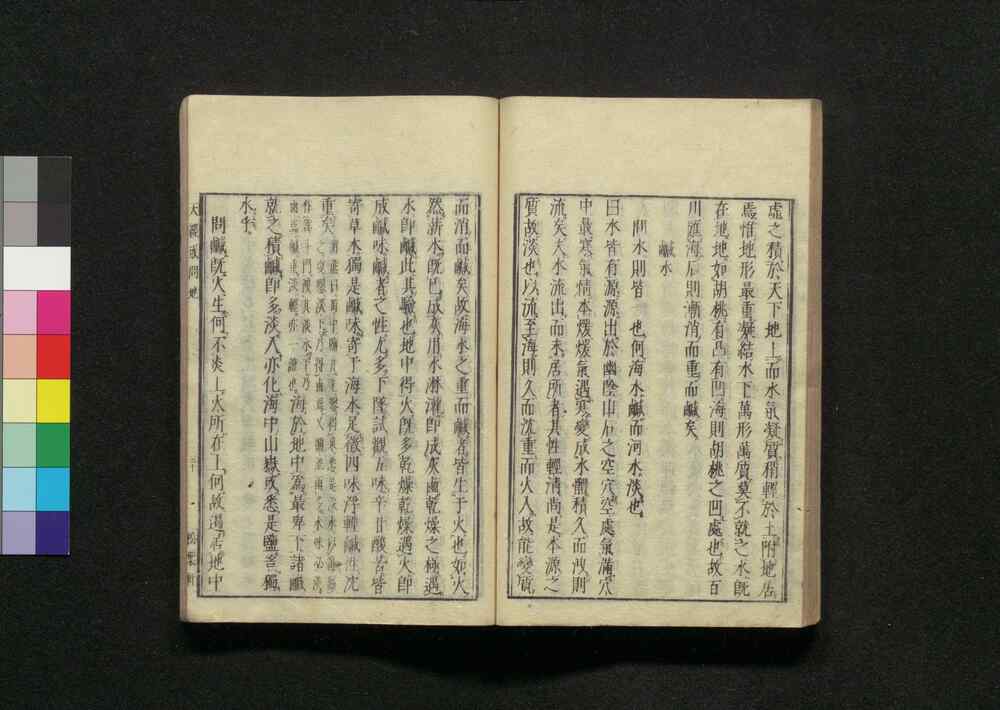 虛之積於天下地上而水氣凝質稍輕於土附地居
焉惟地形最重凝結水下萬形萬質莫不就之水旣
在地地如胡桃有凸有凹海則胡桃之凹處也故百
川匯海居則漸消而重而鹹矣
鹹水
問水則皆 也何海水鹹而河水淡也
曰水皆有源源出於幽陰山石之空穴空處氣滿穴
中最寒氣情本煖煖氣遇寒變成水體積久而洩則
流矣夫水流出而未居所者其性輕清尚是本源之
質故淡也以流至海則久而沈重而火入故能變質
而消而鹹矣故海水之重而鹹者皆生于火也如火
然薪木旣已成灰用水淋灌卽成灰鹵乾燥之極遇
水卽鹹此其驗也地中得火旣多乾燥乾燥遇水卽
成鹹味鹹者之性尤多下墜試觀五味辛甘酸苦皆
寄草木獨是鹹味寄于海水足徵四味浮輕鹹性沈
重矣
海於地中爲最卑下諸鹹
就之積鹹卽多淡入亦化海中山嶽或悉是鹽豈獨
水乎
問鹹旣火生何不炎上火所在上何故潟居地中
天經或問 地